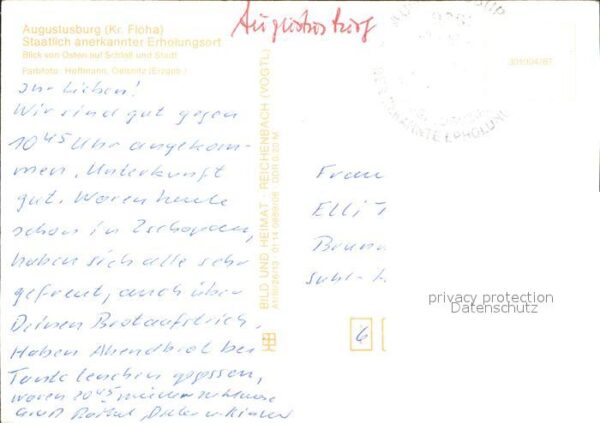 Augustusburg (Kr. Flöha)
Staatlich anerkannter Erholungsort
Blick von Osten auf Schloß und Stadt
Farbfoto: Hoffmann, Oelsnitz (Erzgeb.)
Augustusburg
Ihr Lieben!
Wir sind gut gegen
10 45 Uhr angekom-
men, Unterkunft
gut. Waren heute
schon in Zschopau,
haben sich alle sehr
gefreut, auch über
Deinen Brotaufstrich.
Haben Abendbrot bei
Tante Lenchen gegessen,
waren 20 45 müde zuhause
Gruß Dieter u.
BILD UND HEIMAT · REICHENBACH (VOGTL)
DDR 0,20 M
Frau
Elli
Suhl-
6
privacy protection
Datenschutz